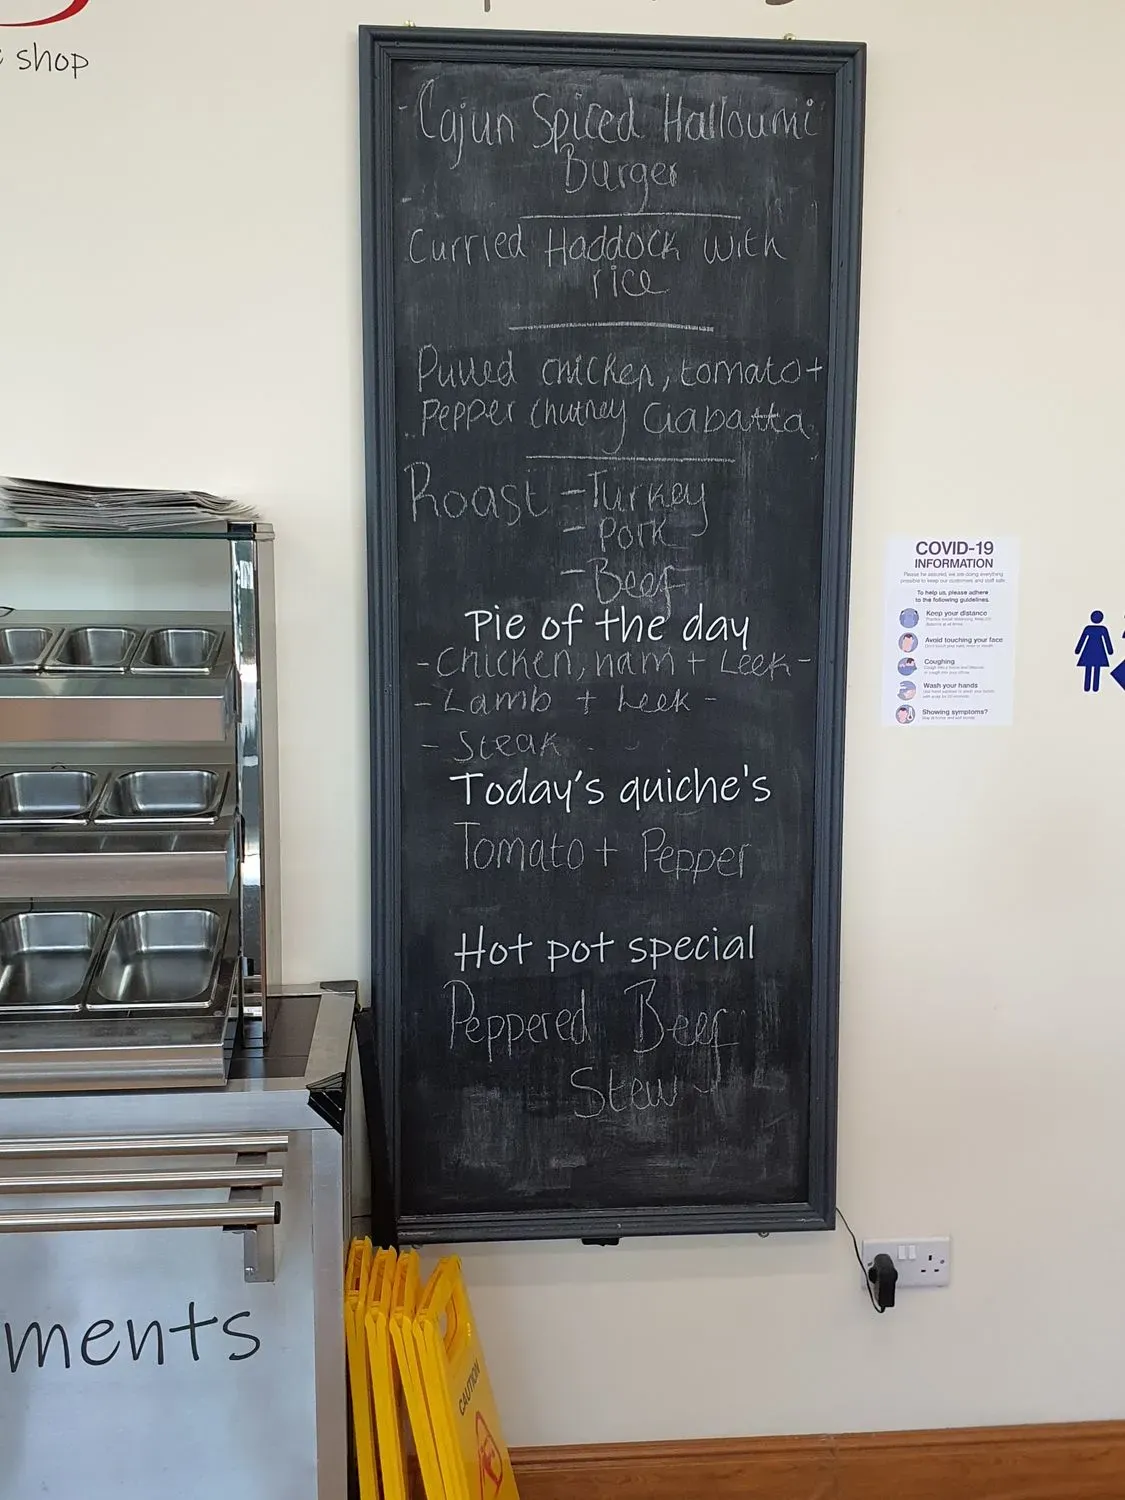 shop
- Cajun Spiced Halloumi
Burger
Curried Haddock with
rice
Pulled chicken, tomato +
Pepper chutney Ciabatta
Roast - Turkey
- Pork
- Beef
Pie of the day
- Chicken, ham + Leek -
- Lamb + Leek -
- Steak
Today's quiche's
Tomato + Pepper
Hot pot special
Peppered Beef
Stew
COVID-19
INFORMATION
Please be assured, we are doing everything
possible to keep our customers and staff safe.
To help us, please adhere
to the following guidelines.
Keep your distance
Avoid touching your face
Coughing
Wash your hands
Showing symptoms?
ments
CAUTION